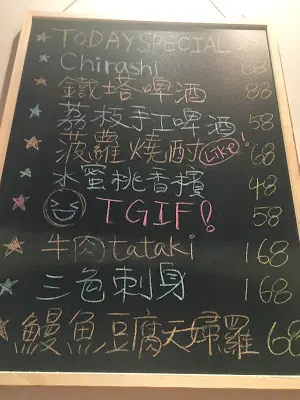 TODAY SPECIAL
Chirashi 168
鐵塔啤酒 88
荔枝手工啤酒 58
菠蘿燒酎 Like! 68
水蜜桃香檳 48
TGIF! 58
牛肉tataki 168
三色刺身 168
鰻魚豆腐天婦羅 68